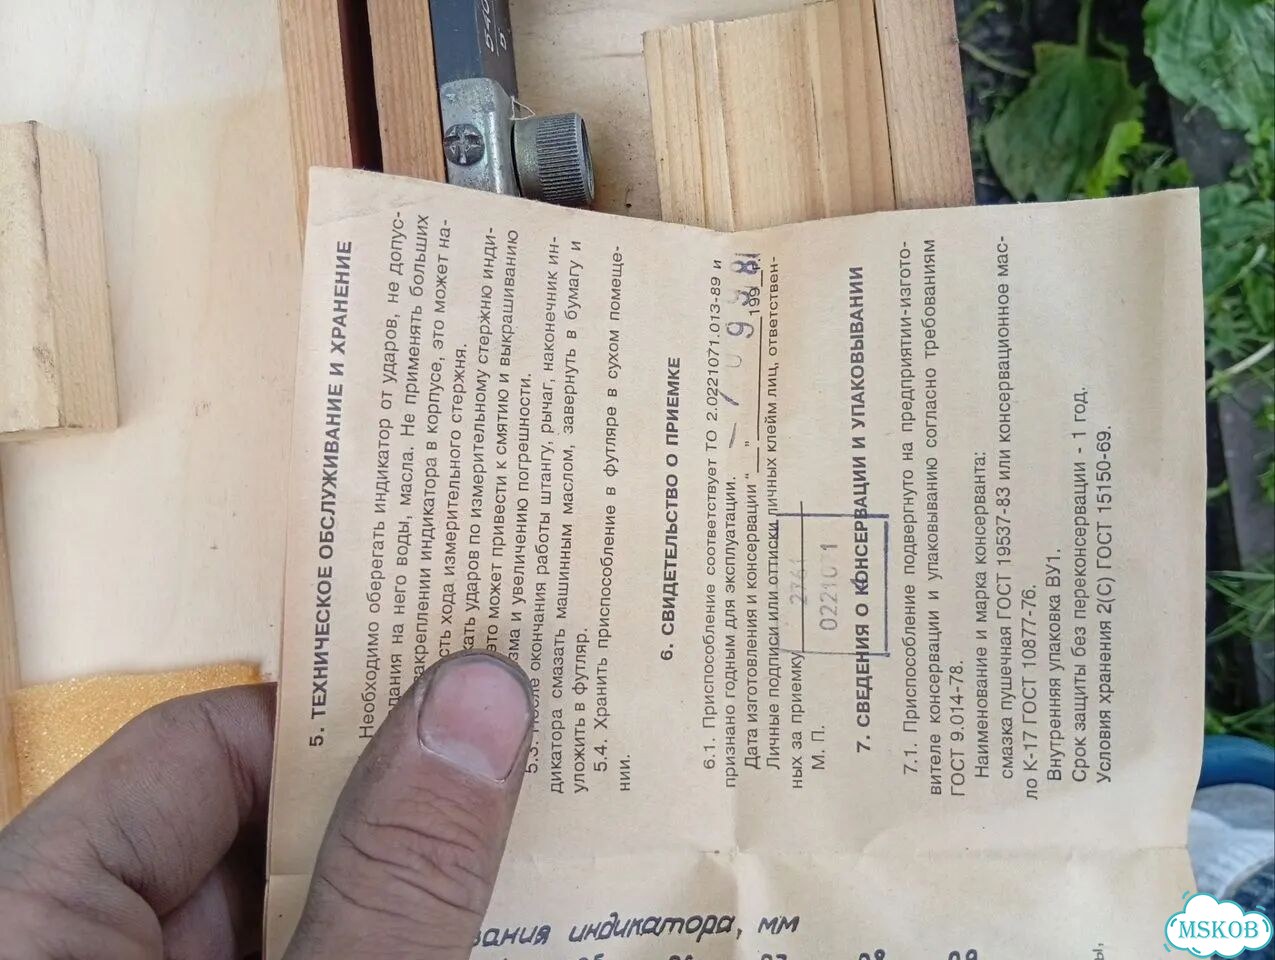 5-40
5. ТЕХНИЧЕСКОЕ ОБСЛУЖИВАНИЕ И ХРАНЕНИЕ
Необходимо оберегать индикатор от ударов, не допус-
дания на него воды, масла. Не применять больших
закреплении индикатора в корпусе, это может на-
сть хода измерительного стержня.
ударов по измерительному стержню инди-
это может привести к смятию и выкрашиванию
зма и увеличению погрешности.
5.3. После окончания работы штангу, рычаг, наконечник ин-
дикатора смазать машинным маслом, завернуть в бумагу и
уложить в футляр.
5.4. Хранить приспособление в футляре в сухом помеще-
нии.
6. СВИДЕТЕЛЬСТВО О ПРИЕМКЕ
6.1. Приспособление соответствует ТО 2.0221071.013-89 и
признано годным для эксплуатации.
Дата изготовления и консервации "__" 199_ г.
Личные подписи или оттиски личных клейм лиц, ответствен-
ных за приемку
0221071
М. П.
7. СВЕДЕНИЯ О КОНСЕРВАЦИИ И УПАКОВЫВАНИИ
7.1. Приспособление подвергнуто на предприятии-изгото-
вителе консервации и упаковыванию согласно требованиям
ГОСТ 9.014-78.
Наименование и марка консерванта:
смазка пушечная ГОСТ 19537-83 или консервационное мас-
ло К-17 ГОСТ 10877-76.
Внутренняя упаковка ВУ1.
Срок защиты без переконсервации - 1 год.
Условия хранения 2(С) ГОСТ 15150-69.
вания индикатора, мм
MSKOB